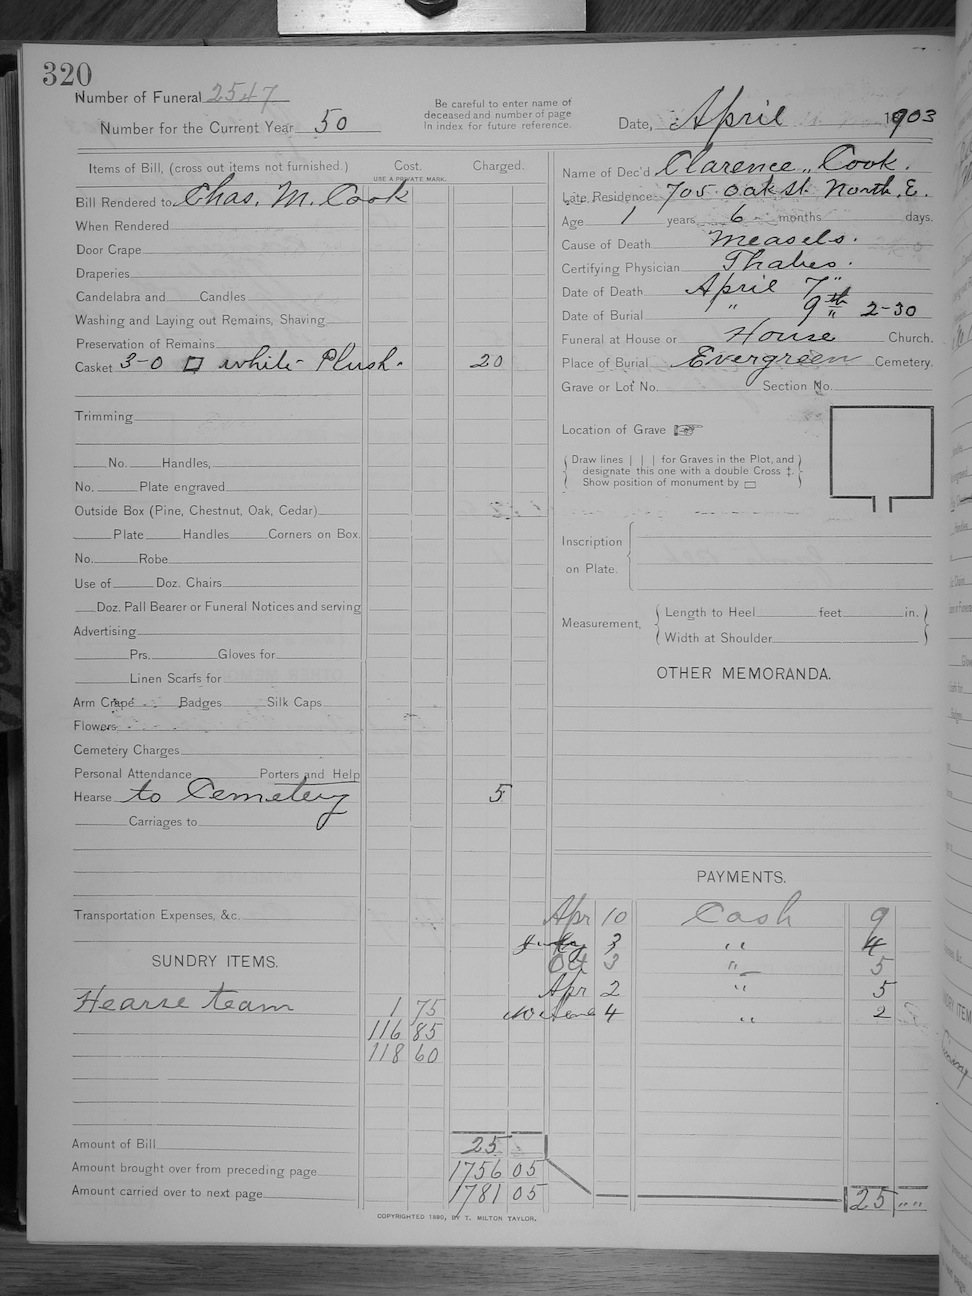 320
Number of Funeral 2547
Number for the Current Year 50
Be careful to enter name of
deceased and number of page
in index for future reference.
Date, April 1903
Items of Bill, (cross out items not furnished.)
Cost.
USE A PRIVATE MARK.
Charged.
Bill Rendered to Chas. M. Cook
When Rendered
Door Crape
Draperies
Candelabra and Candles
Washing and Laying out Remains, Shaving
Preservation of Remains
Casket 3-0 white Plush. 20
Trimming
No. Handles,
No. Plate engraved
Outside Box (Pine, Chestnut, Oak, Cedar)
Plate Handles Corners on Box.
No. Robe
Use of Doz. Chairs
Doz. Pall Bearer or Funeral Notices and serving
Advertising
Prs. Gloves for
Linen Scarfs for
Arm Crape Badges Silk Caps
Flowers
Cemetery Charges
Personal Attendance Porters and Help
Hearse to Cemetery 5
Carriages to
Transportation Expenses, &c.
SUNDRY ITEMS.
Hearse team 1 75
116 85
118 60
Amount of Bill 25
Amount brought over from preceding page 1756 05
Amount carried over to next page 1781 05
Name of Dec'd Clarence Cook.
Late Residence 705 Oak St. North. E.
Age 1 years 6 months days.
Cause of Death Measels.
Certifying Physician Thabes.
Date of Death April 7"
Date of Burial " 9th 2-30
Funeral at House or House Church.
Place of Burial Evergreen Cemetery.
Grave or Lot No. Section No.
Location of Grave
Draw lines | | | for Graves in the Plot, and
designate this one with a double Cross ‡.
Show position of monument by
Inscription
on Plate.
Measurement,
Length to Heel feet in.
Width at Shoulder
OTHER MEMORANDA.
PAYMENTS.
Apr 10 Cash 9
3 " 4
Oct 3 " 5
Apr 2 " 5
4 " 2
25 " "
COPYRIGHTED 1890, BY T. MILTON TAYLOR.